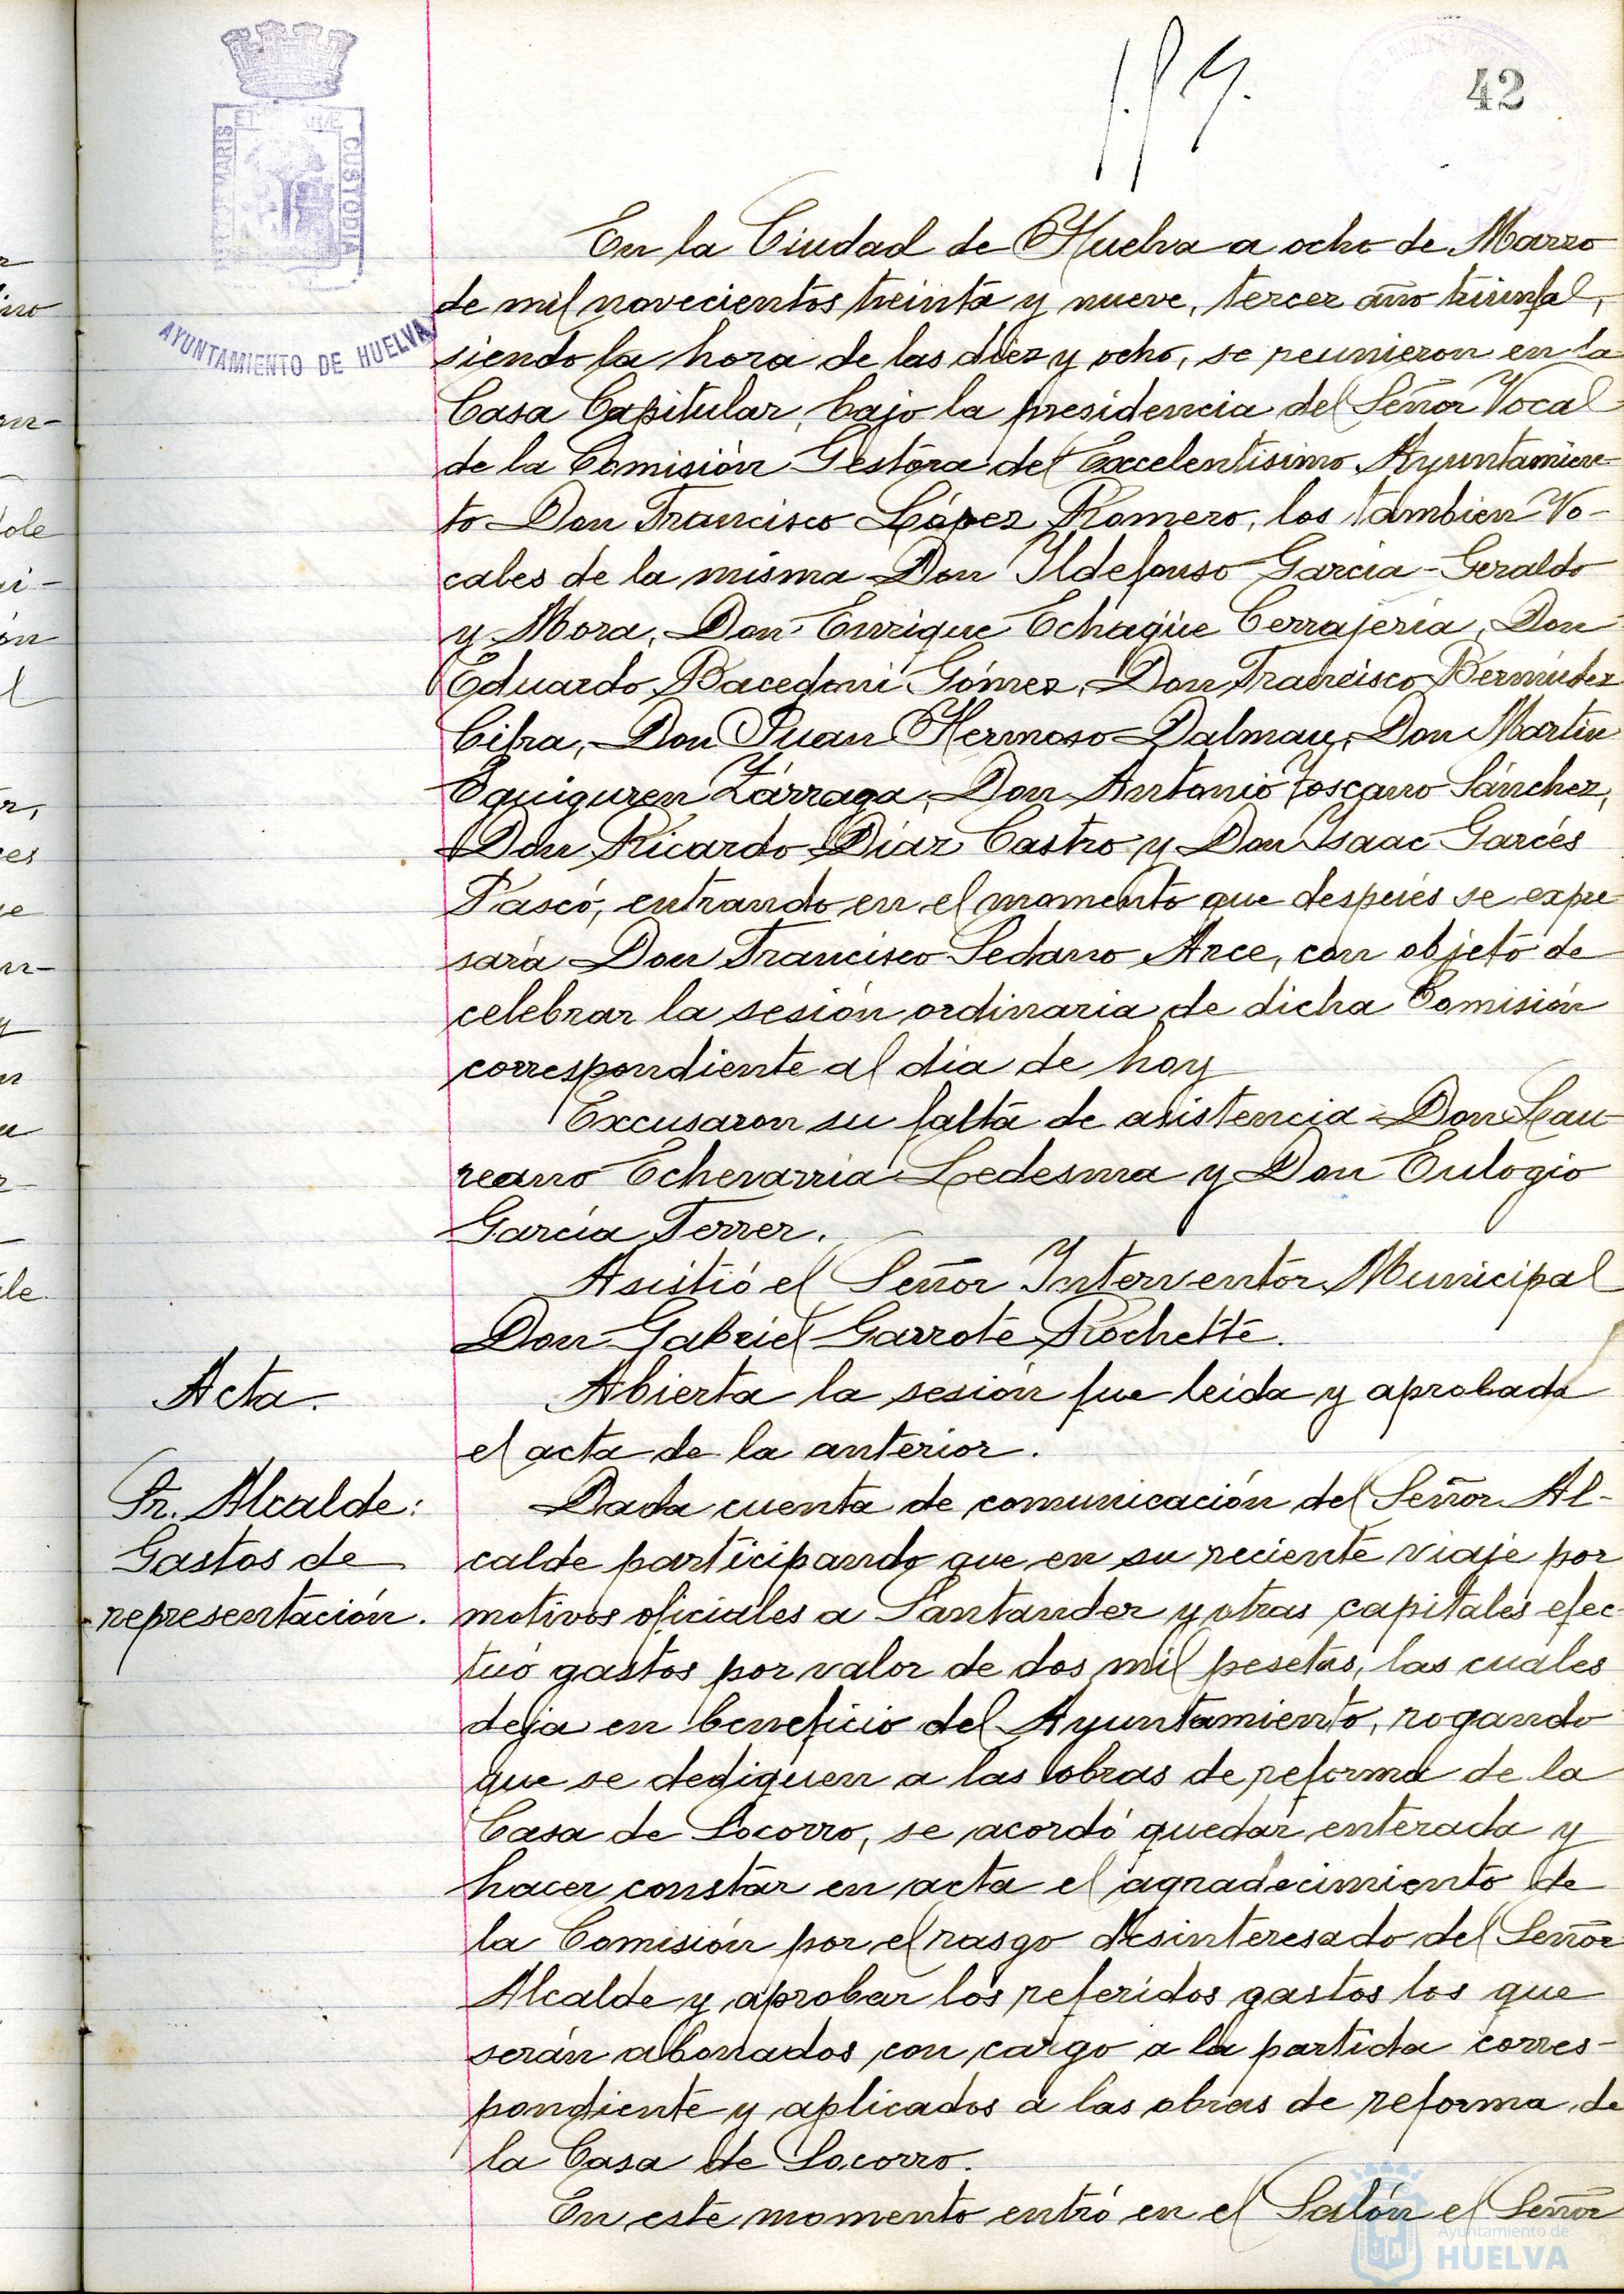 42
AYUNTAMIENTO DE HUELVA
CUSTODIA
En la Ciudad de Huelva a ocho de Marzo
de mil novecientos treinta y nueve, tercer año triunfal,
siendo la hora de las diez y ocho, se reunieron en la
Casa Capitular, bajo la presidencia del Señor Vocal
de la Comisión Gestora del Excelentisimo Ayuntamien-
to Don Francisco López Romero, los tambien Vo-
cales de la misma Don Ildefonso Garcia-Geraldo
y Mora, Don Enrique Echagüe Cerrajeria, Don
Eduardo Bacedoni Gómez, Don Francisco Bermúdez
Cilra, Don Juan Hermoso Dalmau, Don Martin
Eguiguren Zárraga, Don Antonio Toscano Sánchez,
Don Ricardo Diaz Castro y Don Isaac Garcés
Pascó, entrando en el momento que después se expre
sará Don Francisco Sedano Arce, con objeto de
celebrar la sesión ordinaria de dicha Comisión
correspondiente al dia de hoy
Excusaron su falta de asistencia Don Lau
reano Echevarria Ledesma y Don Eulogio
García Ferrer.
Asistió el Señor Interventor Municipal
Don Gabriel Garrote Rochette.
Acta.
Abierta la sesión fue leida y aprobada
el acta de la anterior.
Sr. Alcalde:
Gastos de
representación.
Dada cuenta de comunicación del Señor Al-
calde participando que en su reciente viaje por
motivos oficiales a Santander y otras capitales efec
tuó gastos por valor de dos mil pesetas, las cuales
deja en beneficio del Ayuntamiento, rogando
que se dediquen a las obras de reforma de la
Casa de Socorro, se acordó quedar enterada y
hacer constar en acta el agradecimiento de
la Comisión por el rasgo desinteresado del Señor
Alcalde y aprobar los referidos gastos los que
serán abonados con cargo a la partida corres-
pondiente y aplicados a las obras de reforma de
la Casa de Socorro.
En este momento entró en el Salón el Señor
Ayuntamiento de
HUELVA